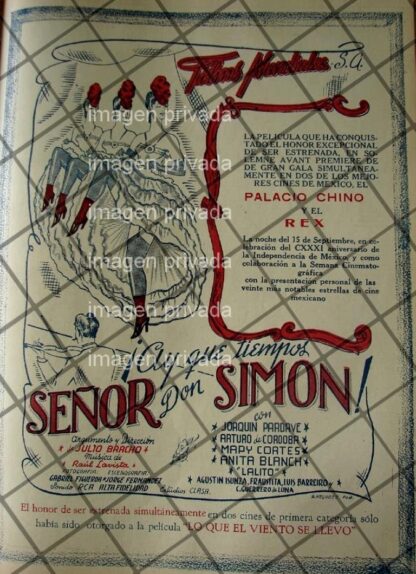 Films Mundiales, S.A.
imagen privada
imagen privada
imagen privada
imagen privada
imagen privada
imagen privada
imagen privada
imagen privada
LA PELICULA QUE HA CONQUIS-
TADO EL HONOR EXCEPCIONAL
DE SER ESTRENADA, EN SO-
LEMNE AVANT PREMIERE DE
DE GRAN GALA SIMULTANEA-
MENTE EN DOS DE LOS MEJO-
RES CINES DE MEXICO, EL
PALACIO CHINO
Y EL
REX
La noche del 15 de Septiembre, en ce-
lebración del CXXXI aniversario de
la Independencia de México, y como
colaboración a la Semana Cinemato-
gráfica
con la presentación personal de las
veinte más notables estrellas de cine
mexicano
¡Ay que tiempos
SEÑOR Don SIMON!
con
JOAQUIN PARDAVE
ARTURO de CORDOBA
MAPY CORTES
ANITA BLANCH
"LALITO"
AGUSTIN ISUNZA, FRAUSTITA, LUIS BARREIRO y
C. GUERRERO de LUNA
Argumento y Dirección
de JULIO BRACHO
Musica de
Raúl Lavista
FOTOGRAFIA ESCENOGRAFIA
GABRIEL FIGUEROA JORGE FERNANDEZ
Sonido RCA ALTA FIDELIDAD Estudios CLASA
El honor de ser estrenada simultáneamente en dos cines de primera categoría sólo
había sido otorgado a la película "LO QUE EL VIENTO SE LLEVO"